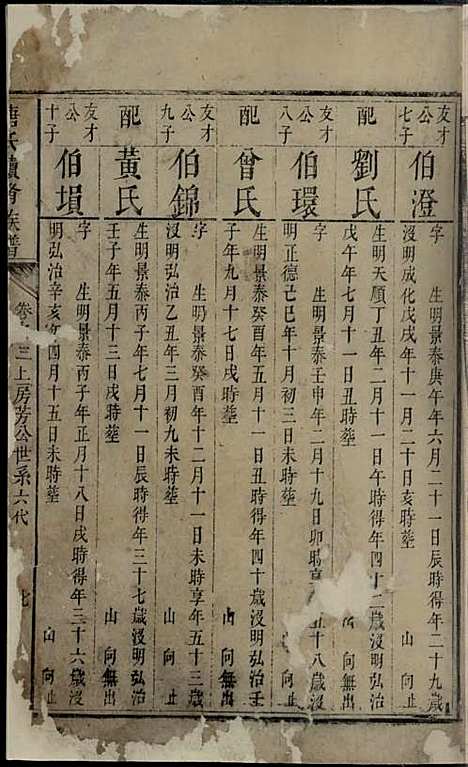 友才公七子
伯澄
字　生明景泰庚午年六月二十一日辰時得年二十九歲
沒明成化戊戌年十一月二十日亥時塟　山　向　止
配
劉氏
生明天順丁丑年二月十一日午時得年四十二歲沒明
戊午年七月十一日丑時塟　山　向無出
友才公八子
伯環
字　生明景泰壬申年二月十九日卯時享　五十八歲沒
明正德己巳年十月初三日未時塟　山　向　止
配
曾氏
生明景泰癸酉年五月十一日丑時得年四十歲沒明弘治壬
子年九月十七日戌時塟　山　向無出
友才公九子
伯錦
字　生明景泰癸酉年十二月十一日未時享年五十三歲
沒明弘治乙丑年三月初九未時塟　山　向　止
配
黃氏
生明景泰丙子年七月十一日辰時得年三十七歲沒明弘治
壬子年五月十三日戌時塟　山　向無出
友才公十子
伯塤
字　生明景泰丙子年正月十八日戌時得年三十六歲沒
明弘治辛亥年四月十五日未時塟　山　向　止
氏續脩族譜
卷　三上房芳公世系六代